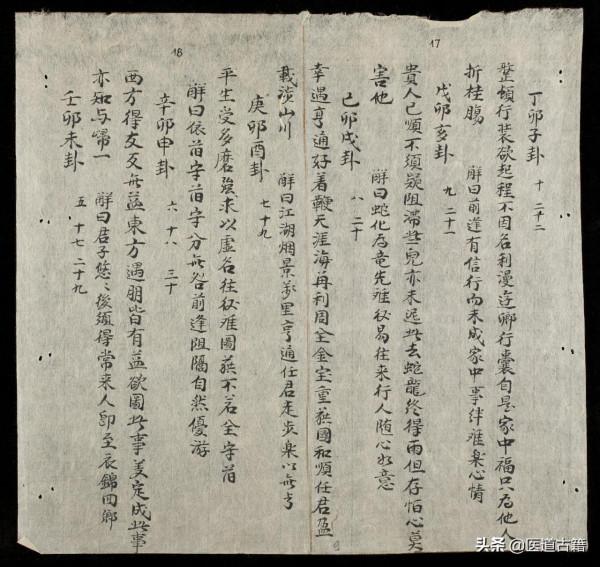 17
丁卯子卦 十 二十二
整頓行裝欲起程不因名利漫鄉行囊自是家中福只為他人
折桂腸 解曰前逢有信行尚未成家中事絆难樂心情
戊卯亥卦 九 二十一
貴人已順不須疑阻滞些兒亦未迟此去蛇龍終得雨但存怕心莫
害他 解曰蛇化為竜先难後易往来行人随心如意
己卯戌卦 八 二十
幸遇亨通好着鞭天涯海再利周全金宝重國和順任君盈
18
載满山川 解曰江湖烟景萬里亨通任君走步樂以無亏
庚卯酉卦 七 十九
平生受多磨強求以虚名往後难圖不若全守苜
解曰依苜守苜守分無咎前逢阻隔自然優游
辛卯申卦 六 十八 三十
西方得友交無益東方遇朋皆有益欲圖此事美定成此事
亦知与歸一 解曰君子悠々後須得常来人即至衣錦回鄉
壬卯未卦 五 十七 二十九
头条 @医道古籍